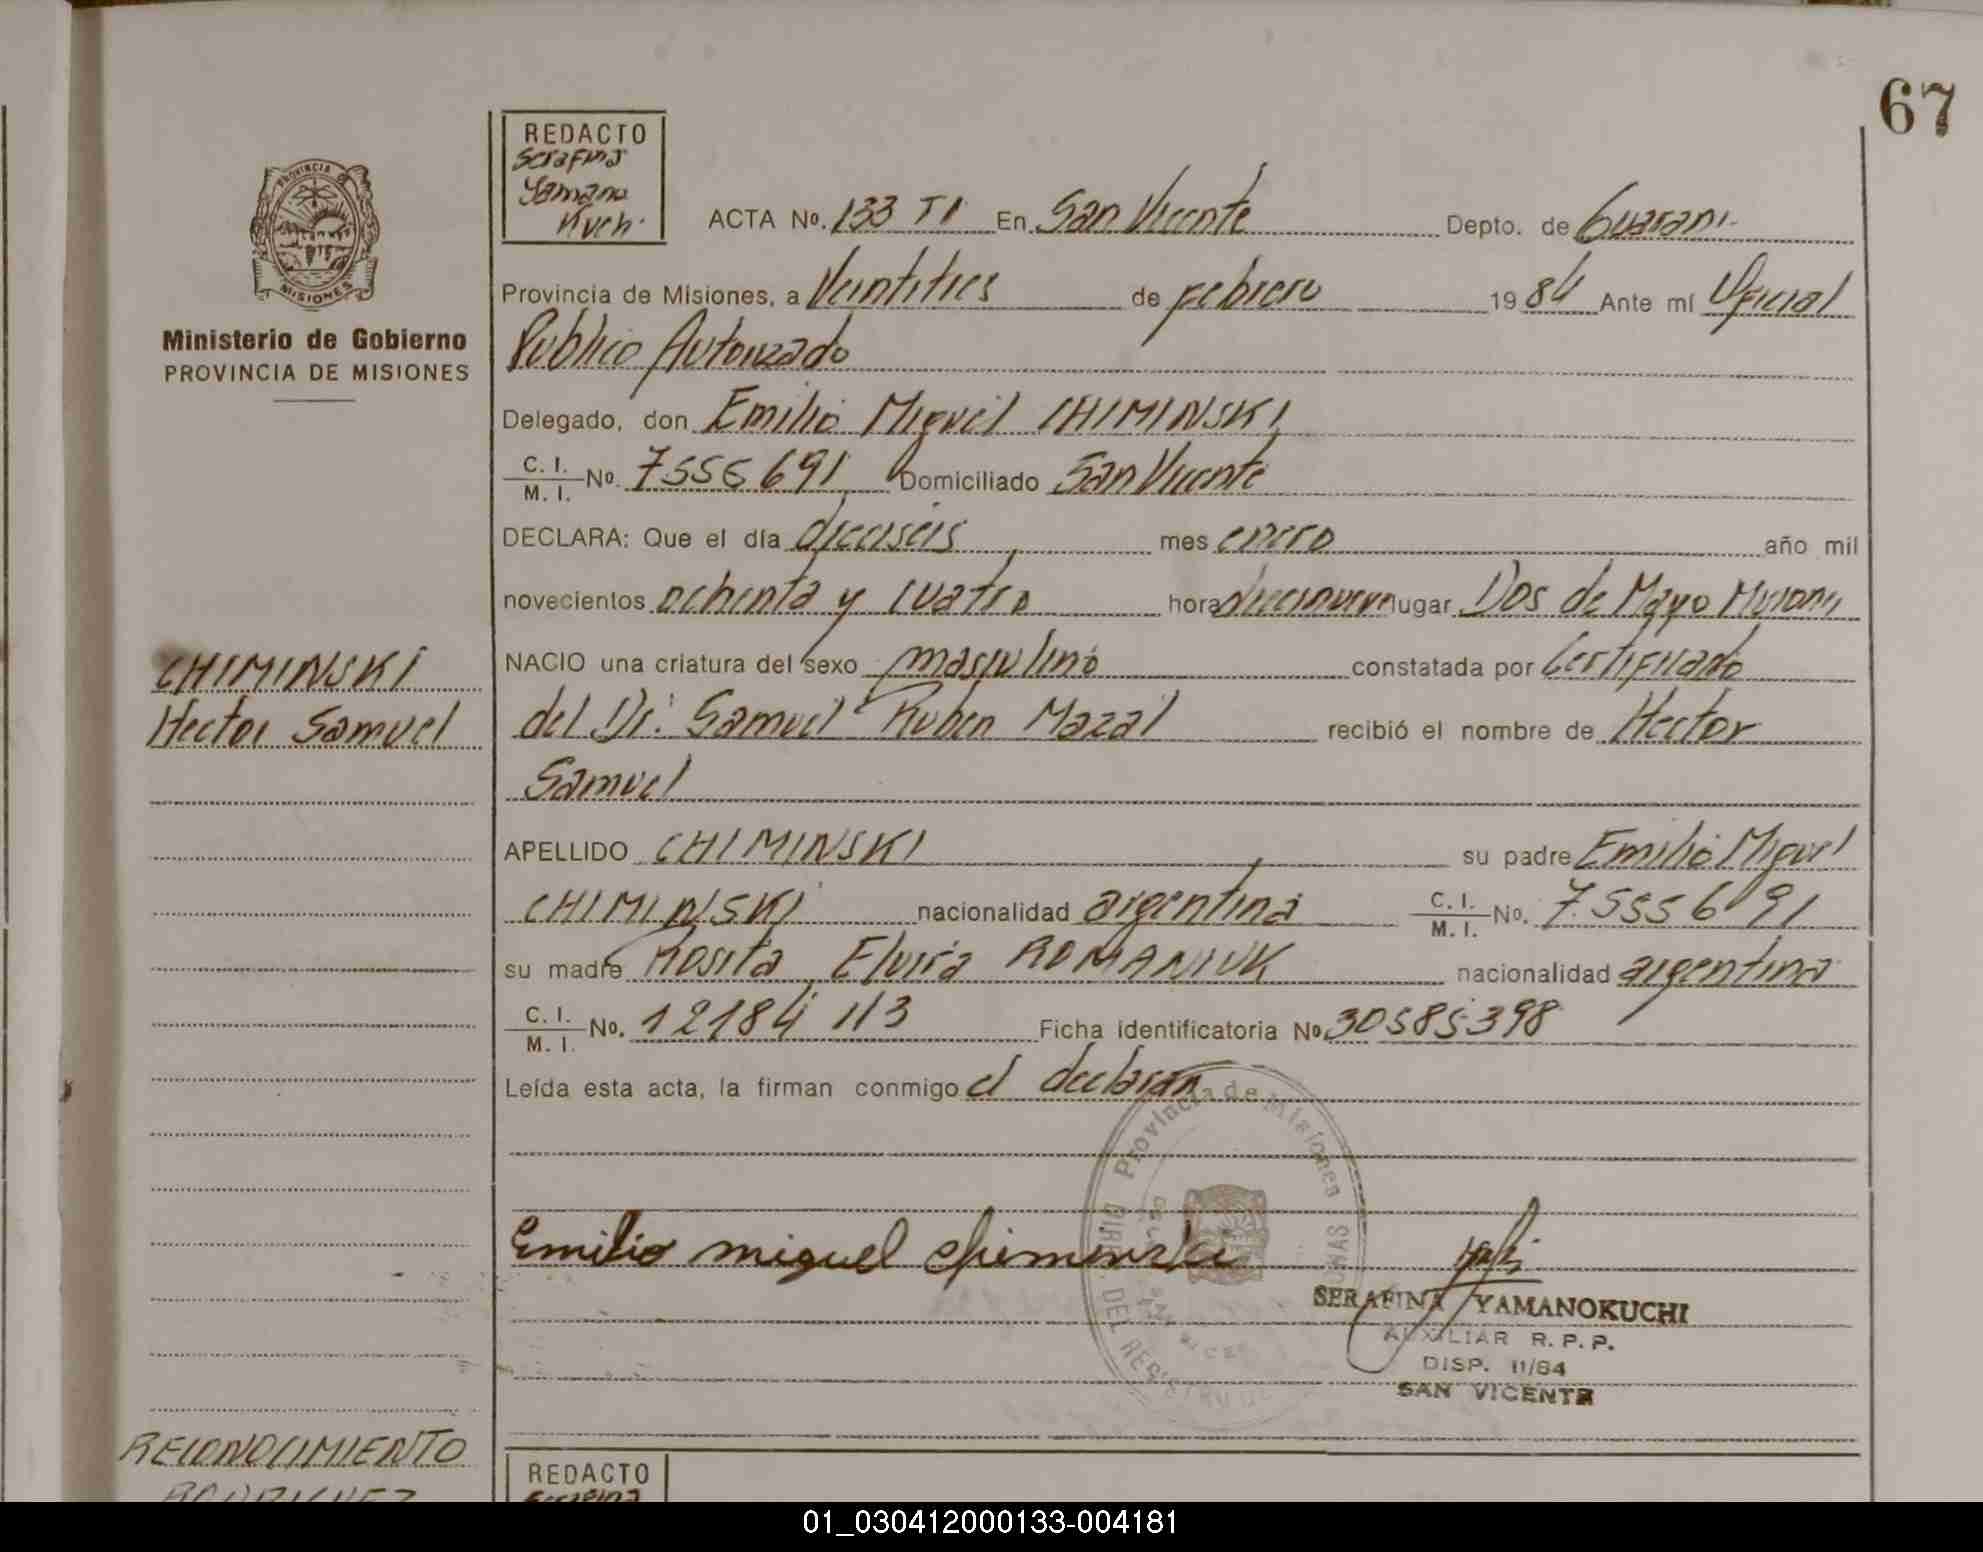 67
REDACTO
Serafina
Yamano
Kuchi
PROVINCIA DE
MISIONES
Ministerio de Gobierno
PROVINCIA DE MISIONES
ACTA No. 133 TI En San Vicente Depto. de Guarani
Provincia de Misiones, a Veintitres de febrero 1984 Ante mí Oficial
Publico Autorizado
Delegado, don Emilio Miguel CHIMINSKI
C. I. / M. I. No. 7555691 Domiciliado San Vicente
DECLARA: Que el día dieciseis mes enero año mil
novecientos ochenta y cuatro hora diecinueve lugar Dos de Mayo Misiones
NACIO una criatura del sexo masculino constatada por Certificado
CHIMINSKI
Hector Samuel
del Dr. Samuel Ruben Mazal recibió el nombre de Hector
Samuel
APELLIDO CHIMINSKI su padre Emilio Miguel
CHIMINSKI nacionalidad argentina C. I. / M. I. No. 7.555691
su madre Rosita Elvira ROMANIUK nacionalidad argentina
C. I. / M. I. No. 12184113 Ficha identificatoria No 30585398
Leída esta acta, la firman conmigo el declaran
Provincia de Misiones
DIR. DEL REGISTRO
Emilio miguel Chiminski
SERAFINA YAMANOKUCHI
AUXILIAR R. P. P.
DISP. 11/84
SAN VICENTE
RECONOCIMIENTO
RODRIGUEZ
REDACTO
Serafina
01_030412000133-004181